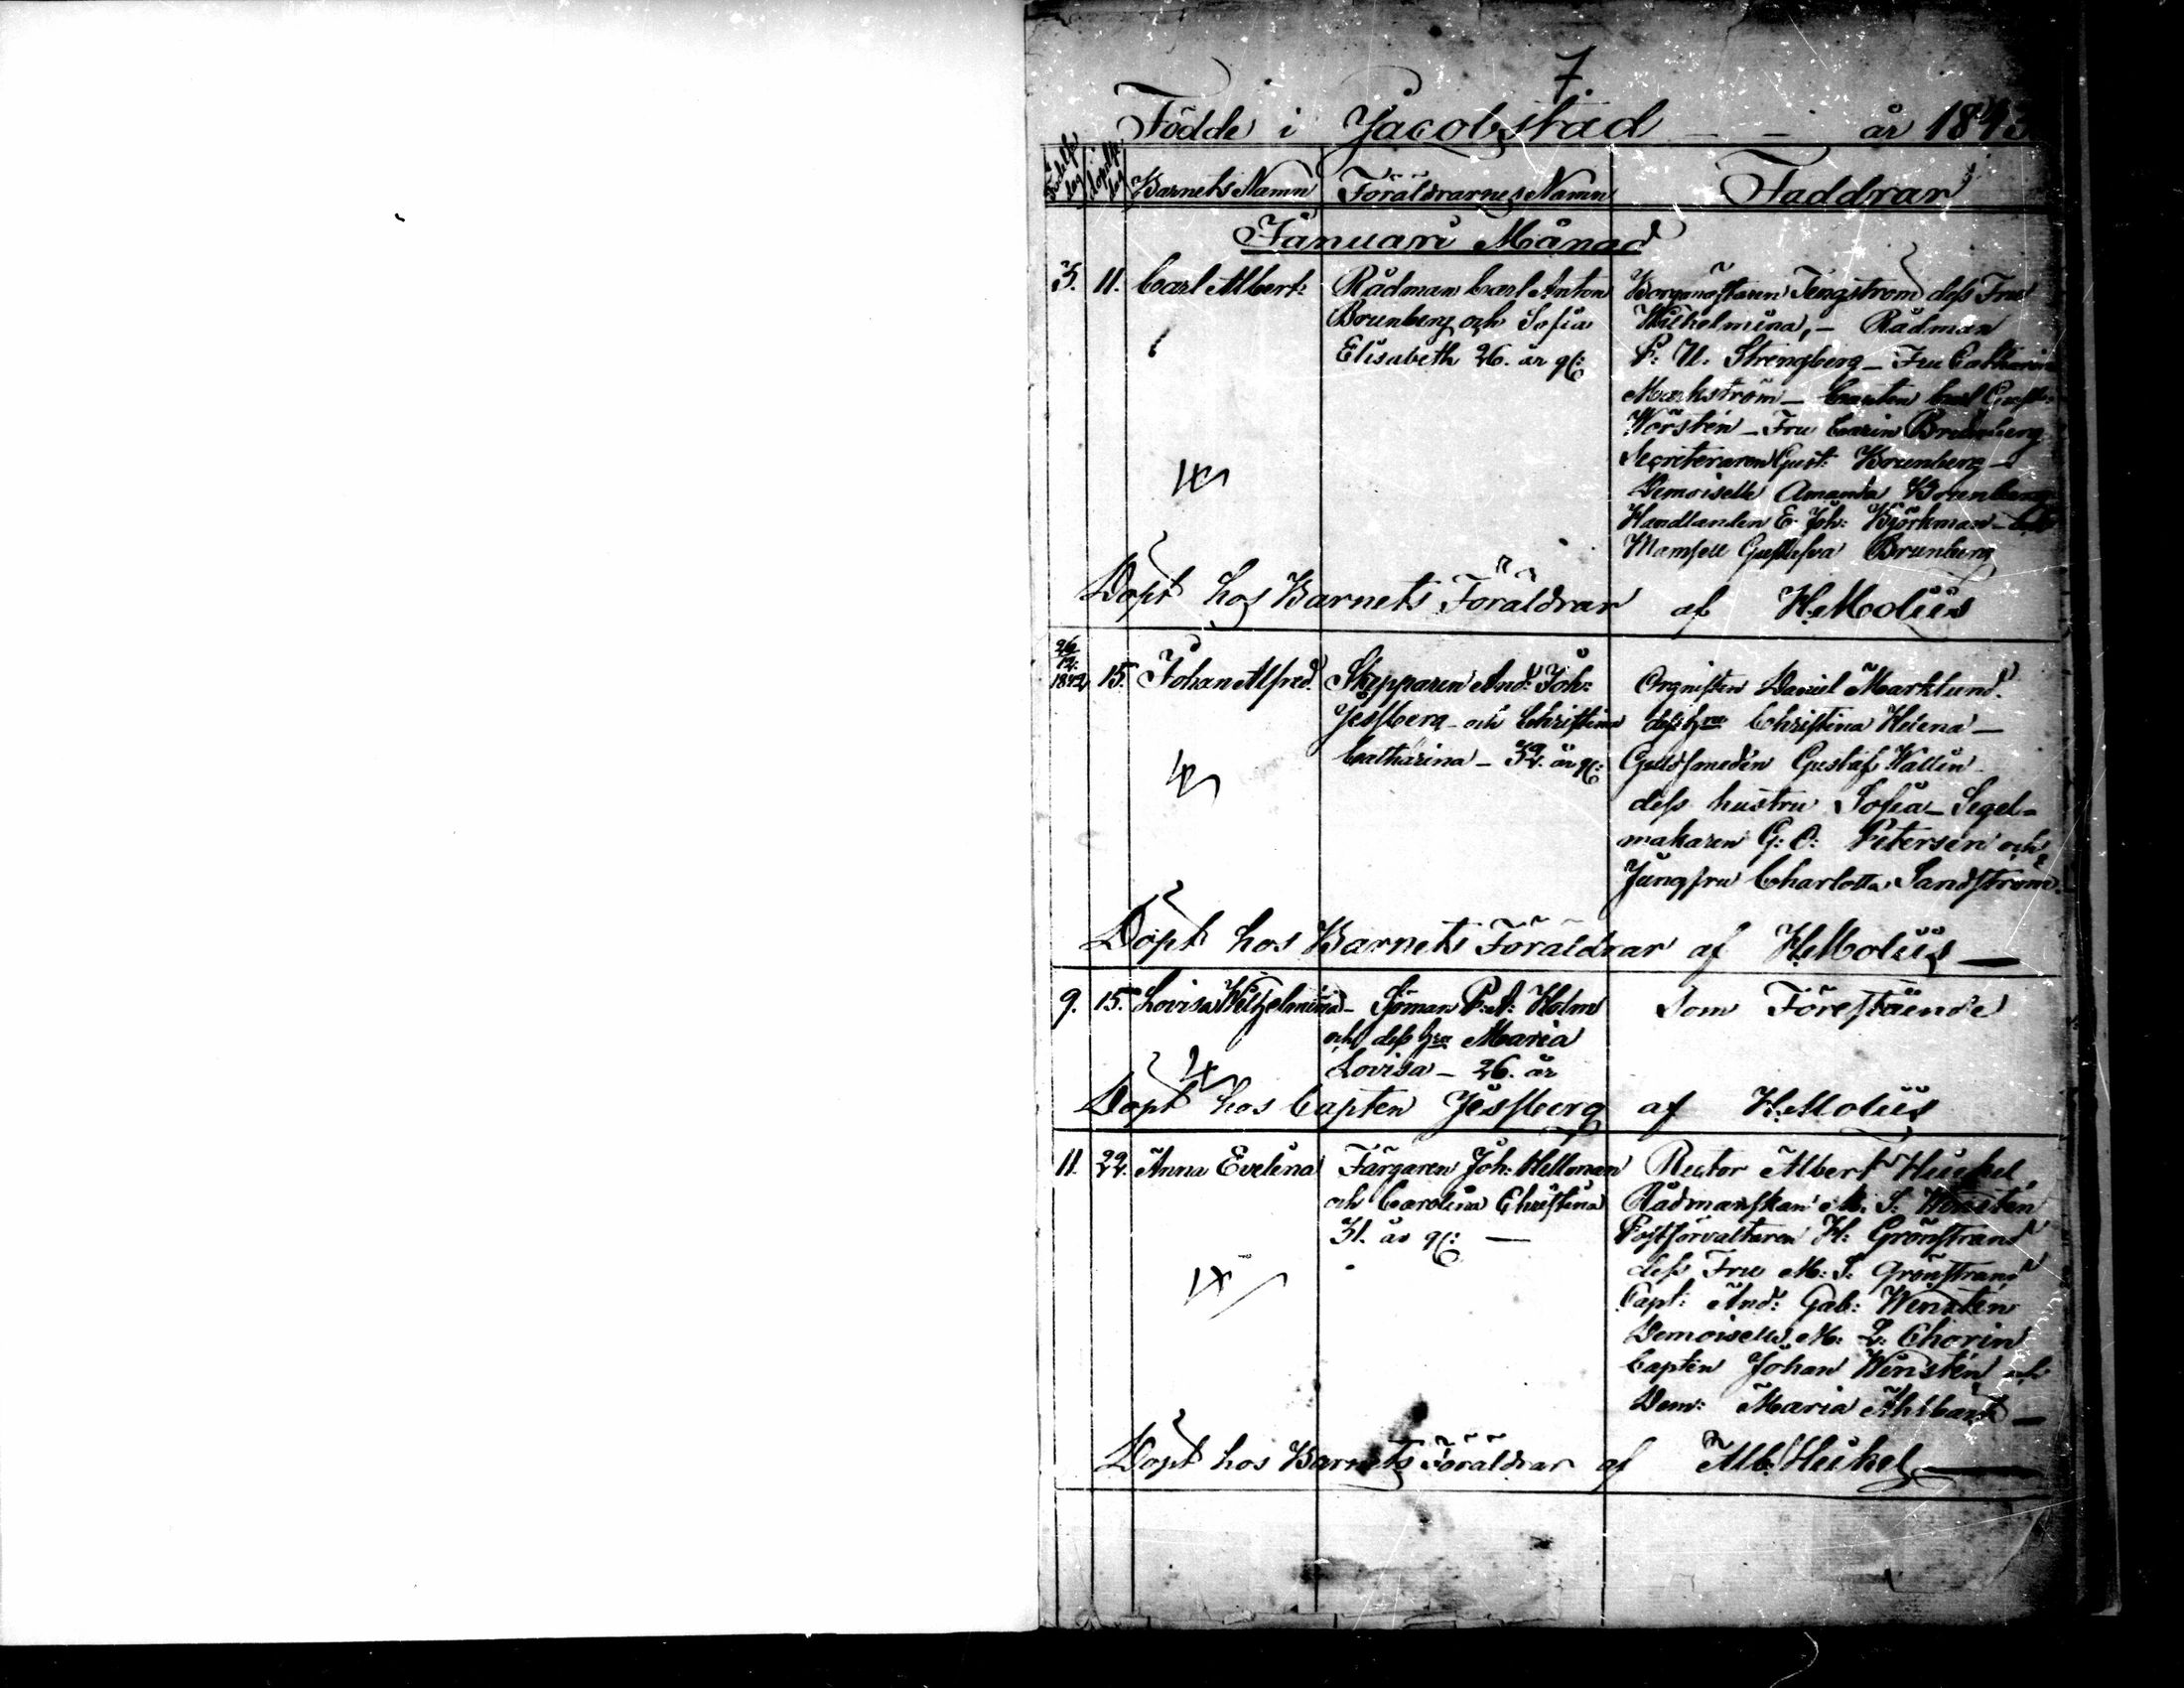 7.
Födde i Jacobstad — — år 1843
Födelse dag Döpelse dag Barnets Namn Föräldrarnes Namn Faddrar
Januari Månad
3. 11. Carl Albert Rådman Carl Anton Borgmästaren Tengström dess Fru
Brunberg och Sofia Wilhelmina, — Rådman
Elisabeth 26. år gl: P: U. Strengberg — Fru Catharina
Markström — Capten Carl Gust:
Worstén — Fru Carin Brunberg
Secreteraren Gust: Brunberg —
Demoiselle Amanda Brunberg
Handlanden E. Joh: Björkman —
Mamsell Gustafva Brunberg
Döpt hos Barnets Föräldrar af H. Molliis
26/12: 1842 15. Johan Alfred. Skepparen And: Joh: Orgnisten Daniel Marklund.
Jessberg — och Christina dess hru Christina Helena —
Catharina — 32. år gl: Guldsmeden Gustaf Wallin
dess hustru Sofia — Segel-
makaren G: O: Petersén och
Jungfru Charlotta Sandström.
Döpt hos Barnets Föräldrar af H. Molliis —
9. 15. Lovisa Wilhelmina — Sjöman P: A: Holm Som Föreståénde
och dess hru Maria
Lovisa — 26. år
Döpt hos Capten Jessberg af H. Molliis
11. 22. Anna Evelina Färgaren Joh: Hellman Rector Albert Heikel
och Carolina Christina Rådmanskan M. S. Wenstén
31. år gl: — Postförvaltaren H: Grönstrand
dess Fru M: S. Grönstrand
Capt: And: Gab: Wenstén
Demoiselle M: L: Chorin
Capten Johan Wenstén och
Dem: Maria Ahlbäck —
Döpt hos Barnets Föräldrar af Alb. Heikel —